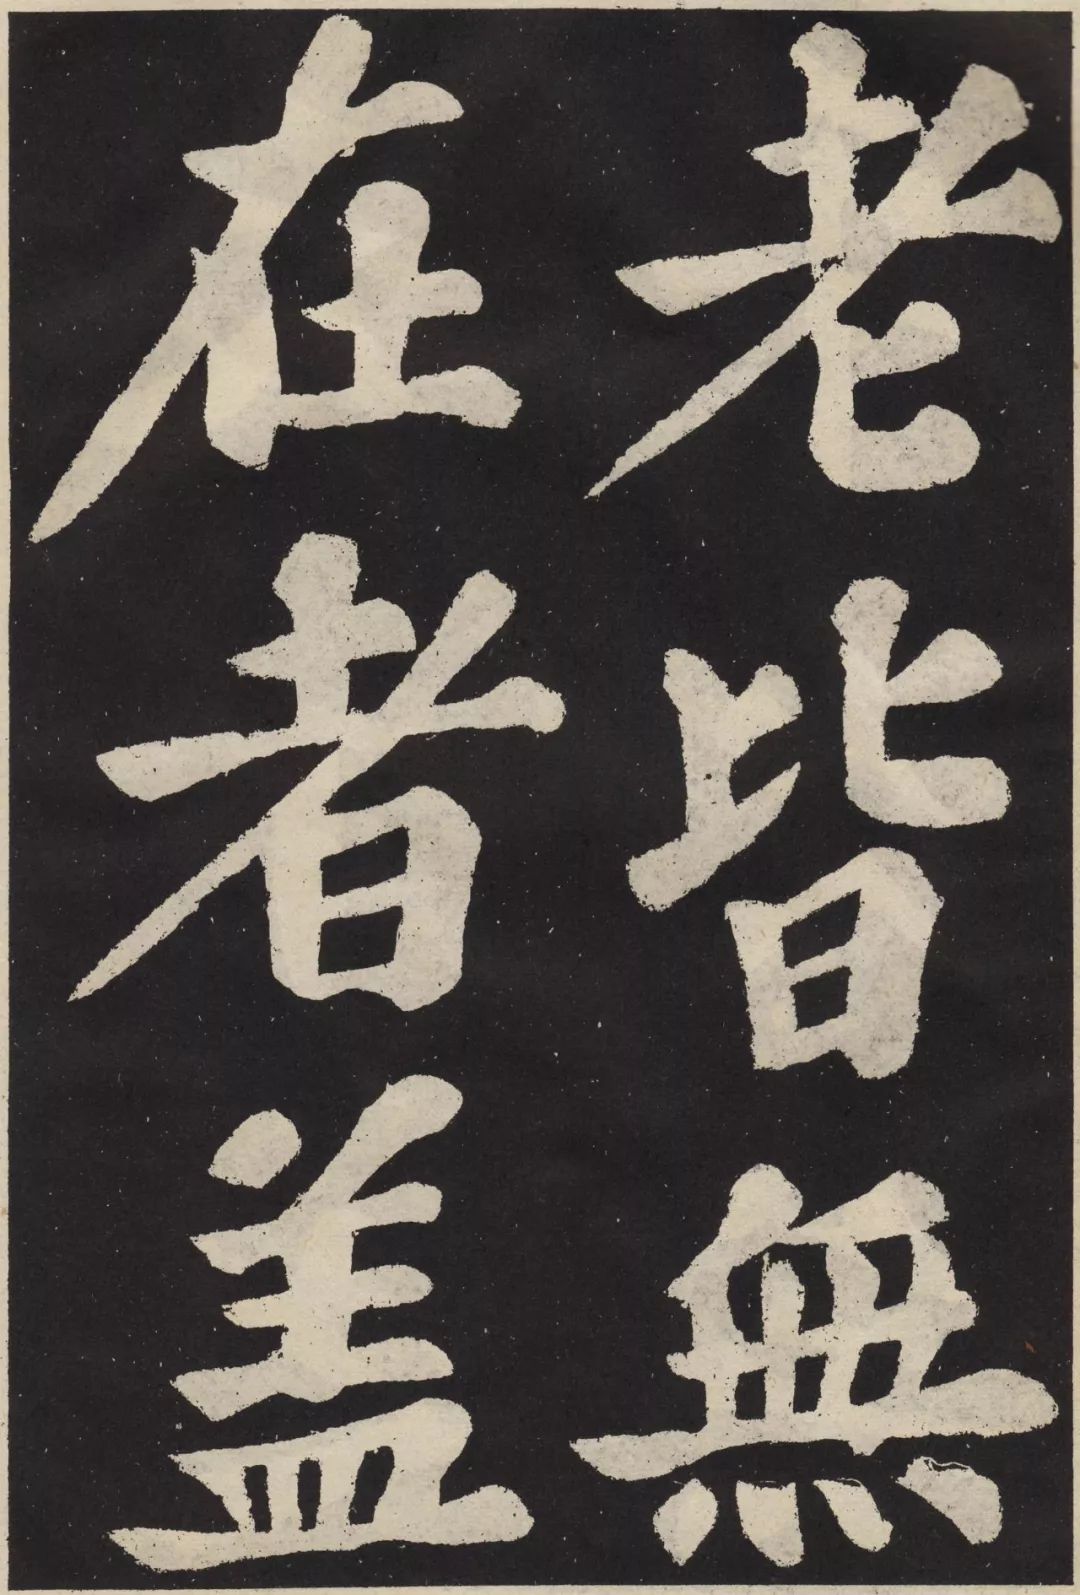 老皆無
在者盖